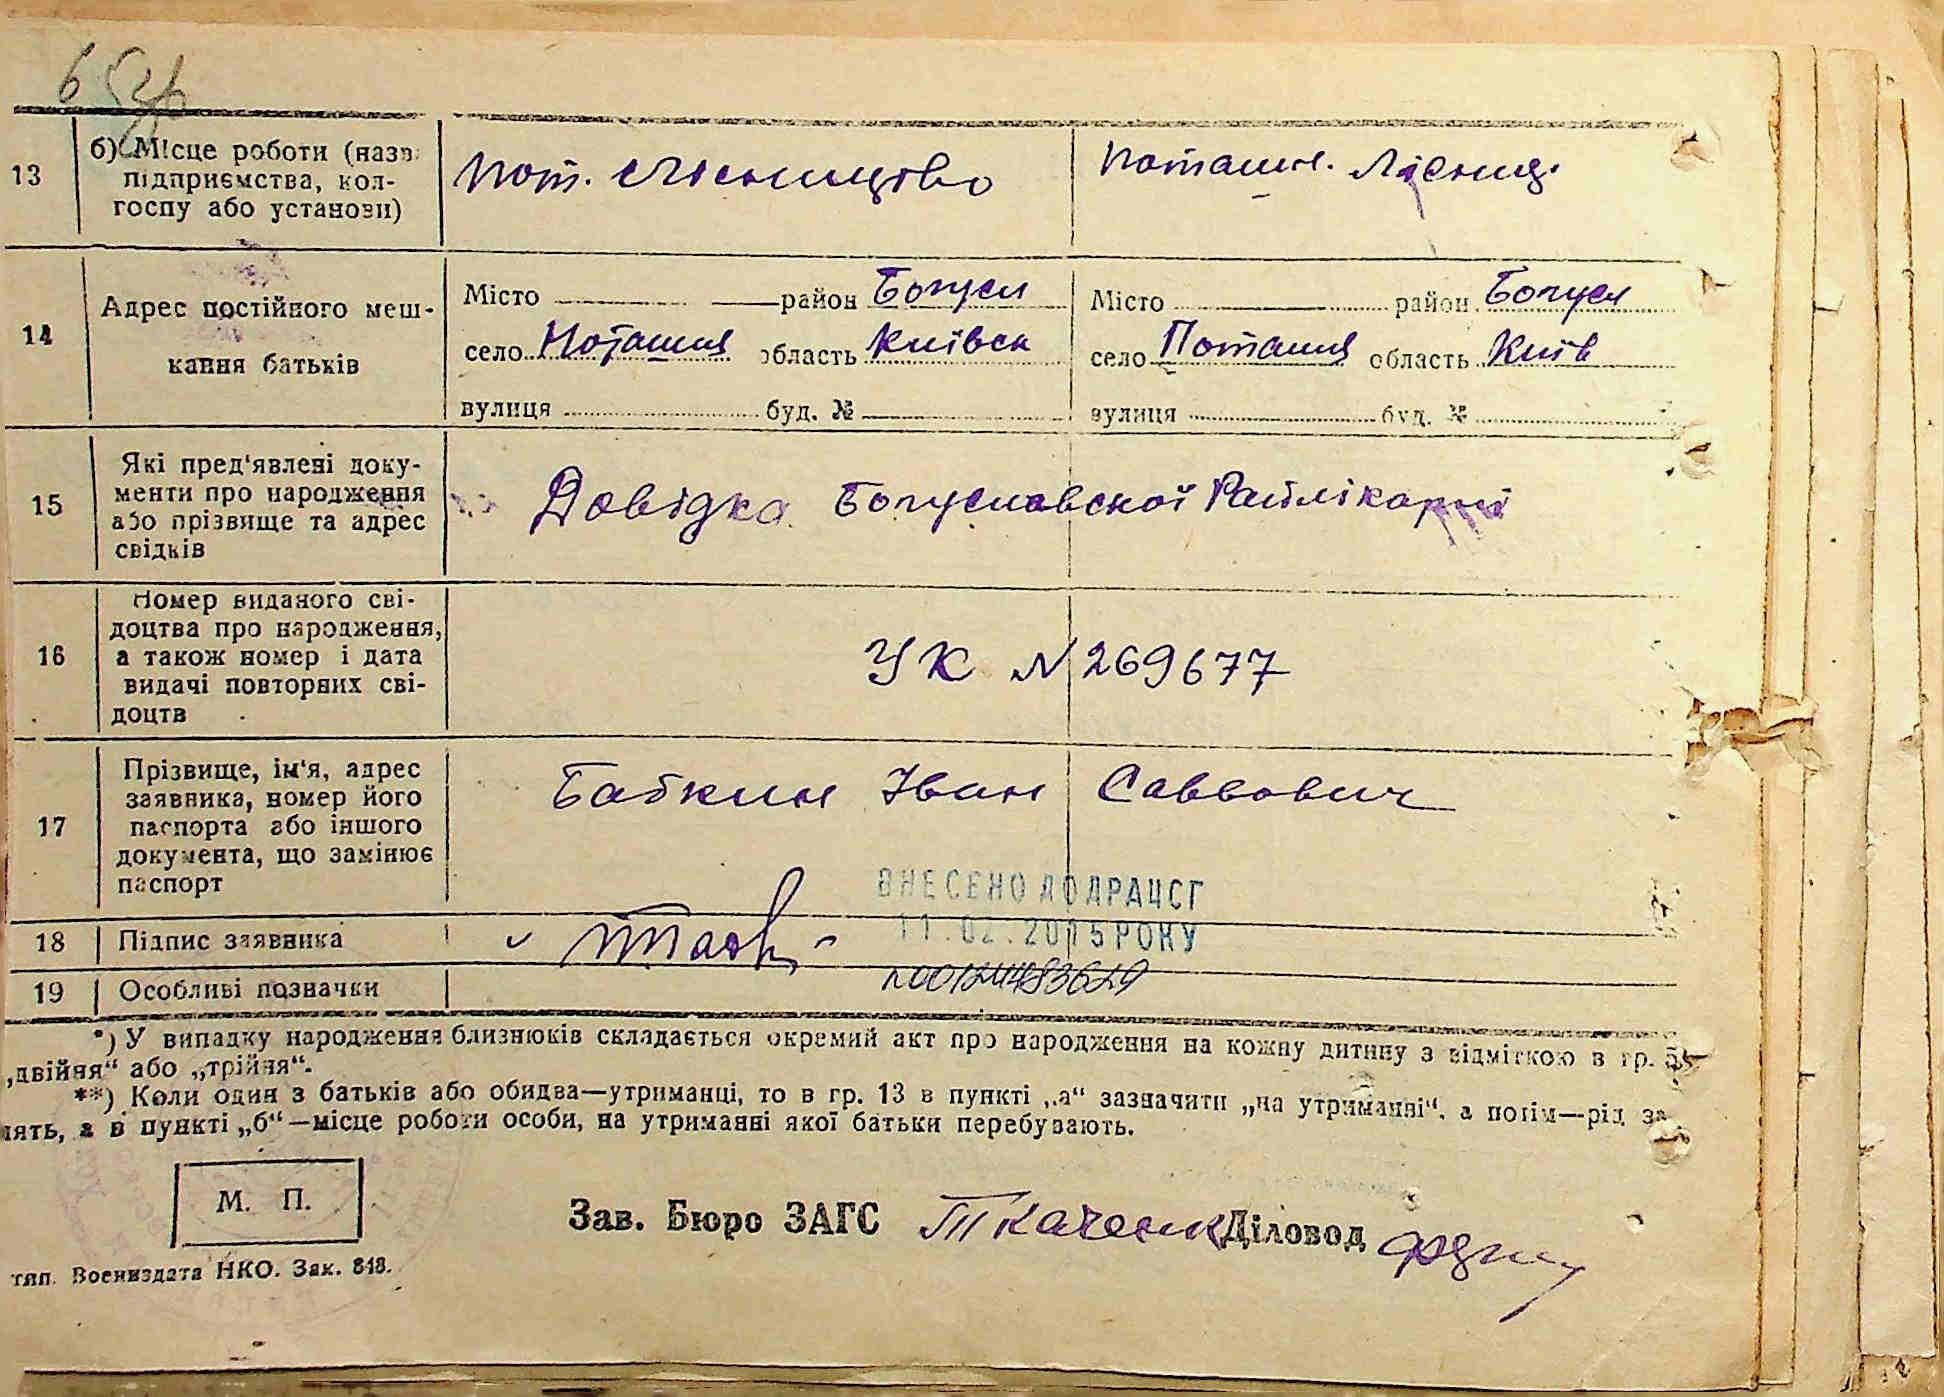 13
б) Місце роботи (назв
підприємства, кол-
госпу або установи)
Пот. Лісництво
Поташн. Лісниц.
14
Адрес постійного меш-
кання батьків
Місто район Богусл
село Поташня область Київск
вулиця буд. №
Місто район Богусл
село Поташня область Київ
вулиця буд. №
15
Які пред'явлені доку-
менти про народження
або прізвище та адрес
свідків
Довідка Богуславскої Райлікарні
16
Номер виданого сві-
доцтва про народження,
а також номер і дата
видачі повторних сві-
доцтв
УК N 269677
17
Прізвище, ім'я, адрес
заявника, номер його
паспорта або іншого
документа, що замінює
паспорт
Бабкин Іван Саввович
ВНЕСЕНО ДО ДРАЦСГ
11.02.2015 РОКУ
18
Підпис заявника
19
Особливі позначки
*) У випадку народження близнюків складається окремий акт про народження на кожну дитину з відміткою в гр. 5
„двійня“ або „трійня“.
**) Коли один з батьків або обидва—утриманці, то в гр. 13 в пункті „а“ зазначити „на утриманні“, а потім—рід за
нять, а в пункті „б“—місце роботи особи, на утриманні якої батьки перебувають.
М. П.
Зав. Бюро ЗАГС Ткаченк Діловод
тип. Воениздата НКО. Зак. 848.